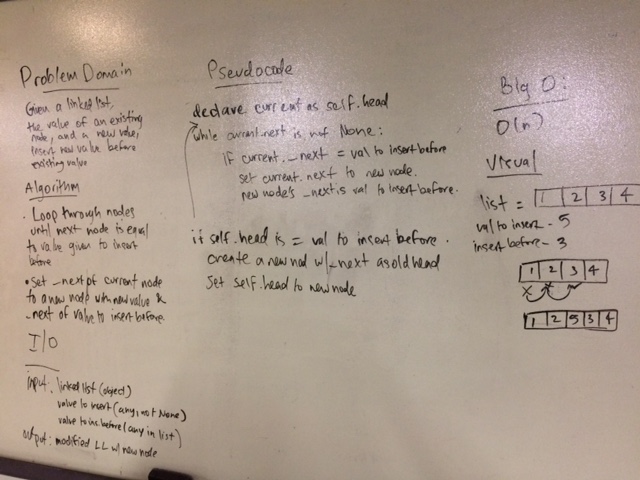 Problem Domain
Given a linked list,
the value of an existing
node, and a new value,
insert new value before
existing value
Algorithm
• Loop through nodes
until next node is equal
to value given to insert
before
• Set _next of current node
to a new node with new value &
_next of value to insert before.
I/O
Input: linked list (object)
value to insert (any, not None)
value to ins. before (any in list)
output: modified LL w/ new node
Pseudocode
declare current as self.head
while current.next is not None:
if current._next = val to insert before
set current.next to new node.
new node's _next is val to insert before.
if self.head is = val to insert before.
create a new nod w/ _next as old head
set self.head to new node
Big O:
O(n)
Visual
list = 1 2 3 4
val to insert - 5
insert before - 3
1 2 3 4
x x ✓
1 2 5 3 4